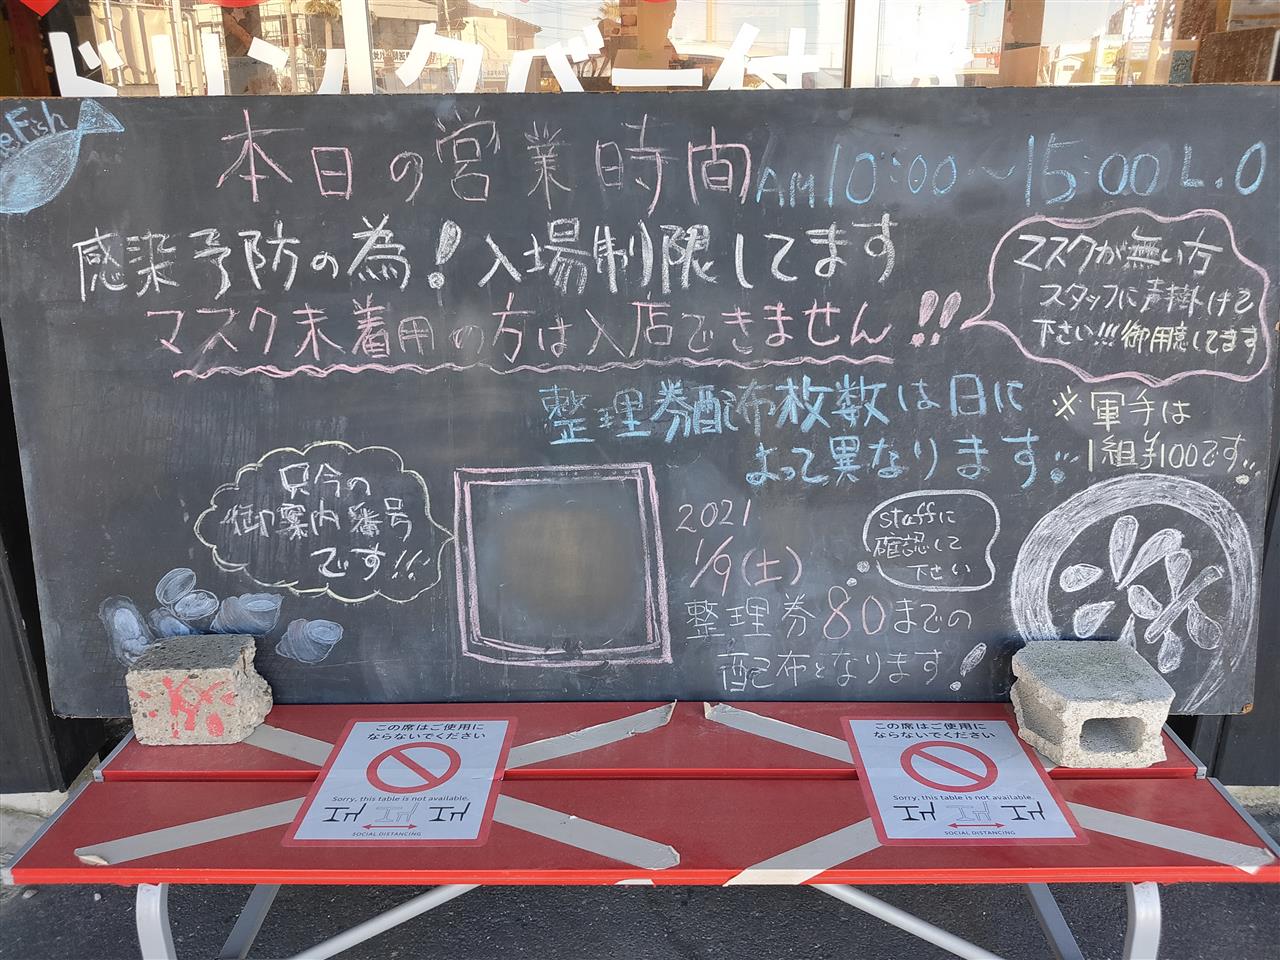 ドリンクバー付
eFish
本日の営業時間 AM10:00～15:00 L.O
感染予防の為!入場制限してます
マスク未着用の方は入店できません!!
マスクが無い方
スタッフに声掛けて
下さい!!!御用意してます
整理券配布枚数は日に
よって異なります!!
※軍手は
1組¥100です!!
只今の
御案内番号
です!!
2021
1/9(土)
整理券80までの
配布となります!
staffに
確認して
下さい
この席はご使用に
ならないでください
Sorry, this table is not available.
SOCIAL DISTANCING
この席はご使用に
ならないでください
Sorry, this table is not available.
SOCIAL DISTANCING